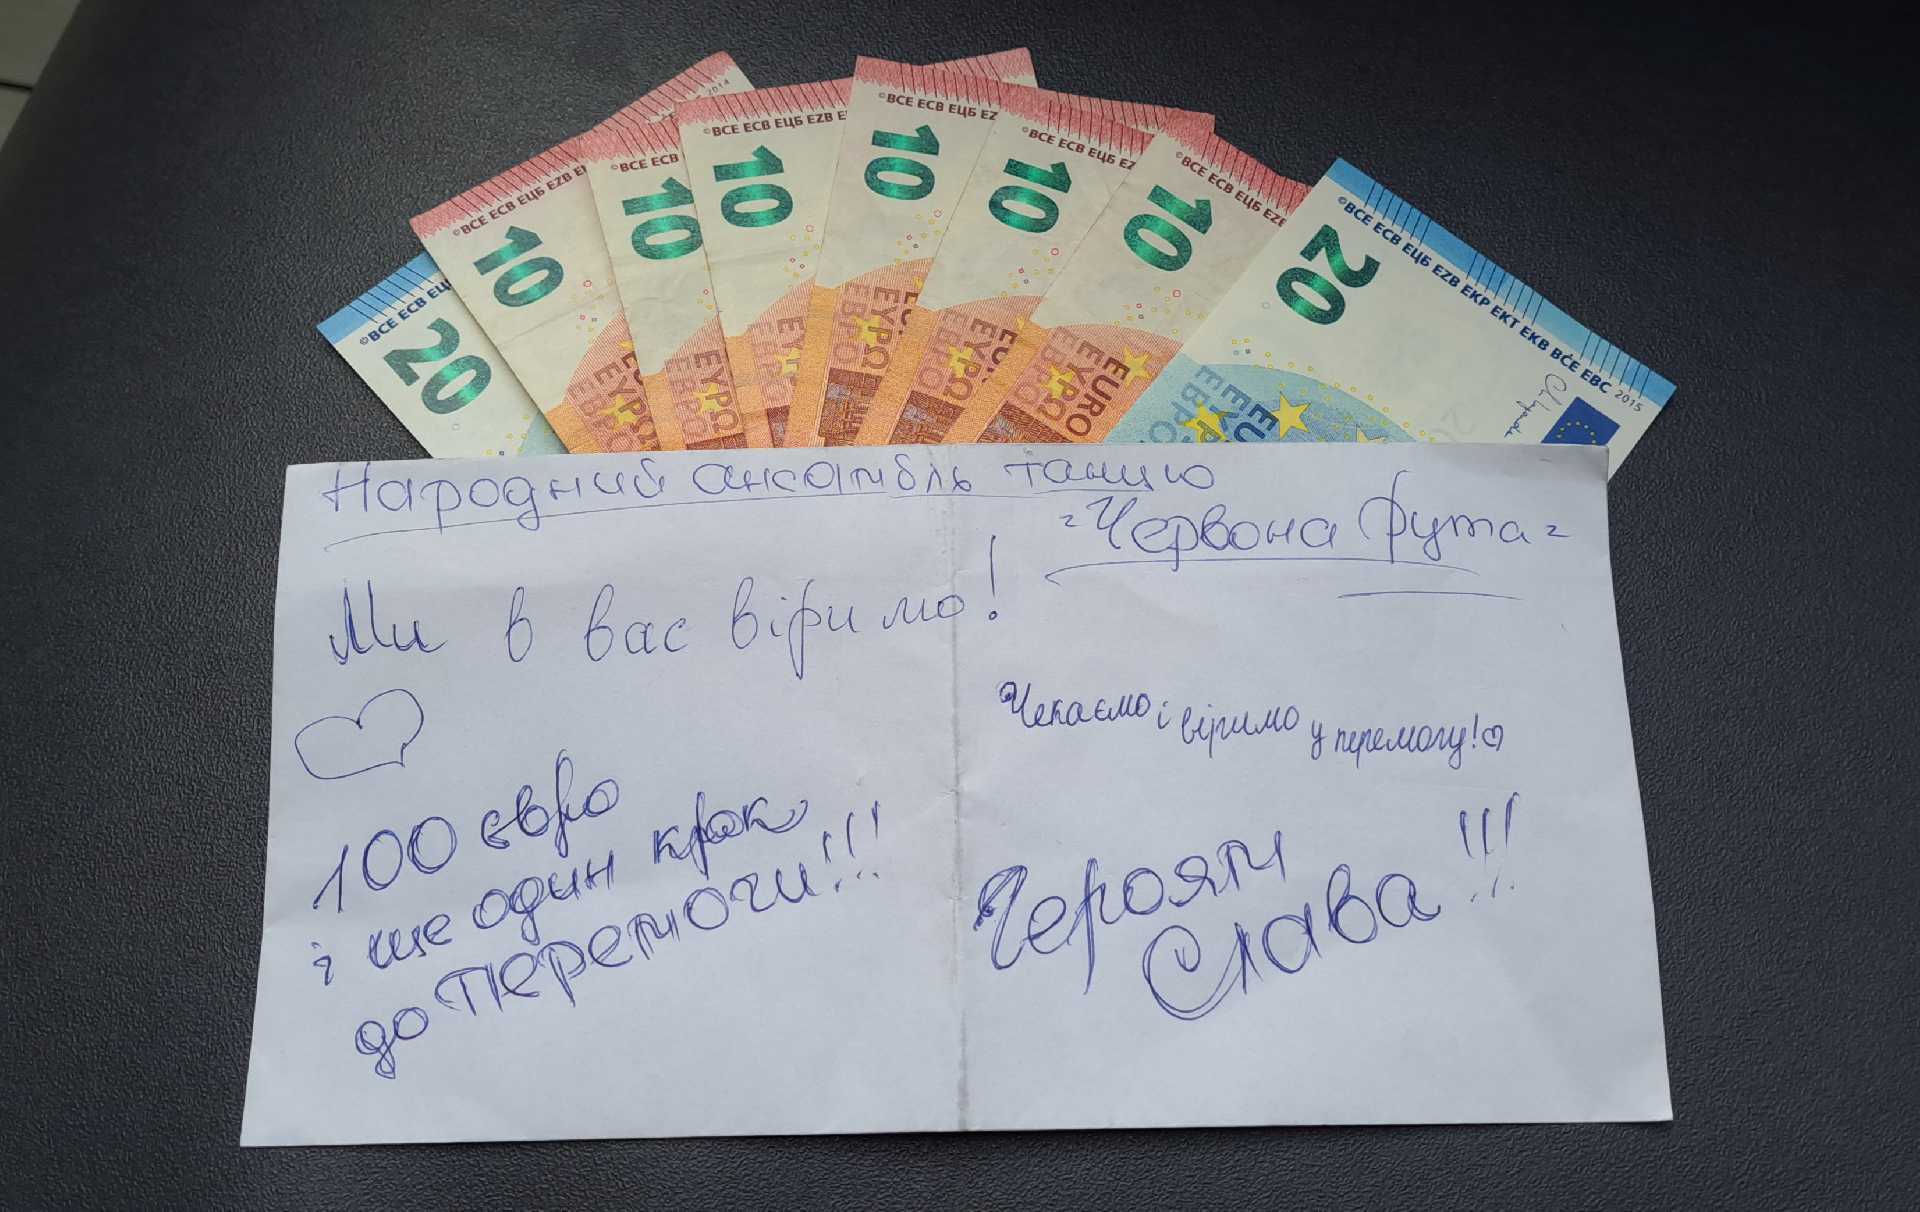 ©BCE ECB ЕЦБ EZB E
©BCE ECB
©BCE ECB ЕЦБ EZB
©BCE ECB ЕЦБ EZ
©BCE ECB ЕЦБ EZ
©BCE ECB ЕЦБ EZE
©BCE ECB ЕЦБ EZB EKP EKT EKB BĊE EBC 2015
©BCE ECB ЕЦ
2014
20
10
10
10
10
10
10
20
EURO
ΕΥΡΩ
ЕВРО
Народний ансамбль танцю
"Червона Рута"
Ми в вас віримо!
Чекаємо і віримо у перемогу!
100 євро
і ще один крок
до перемоги!!!
Героям
Слава!!!